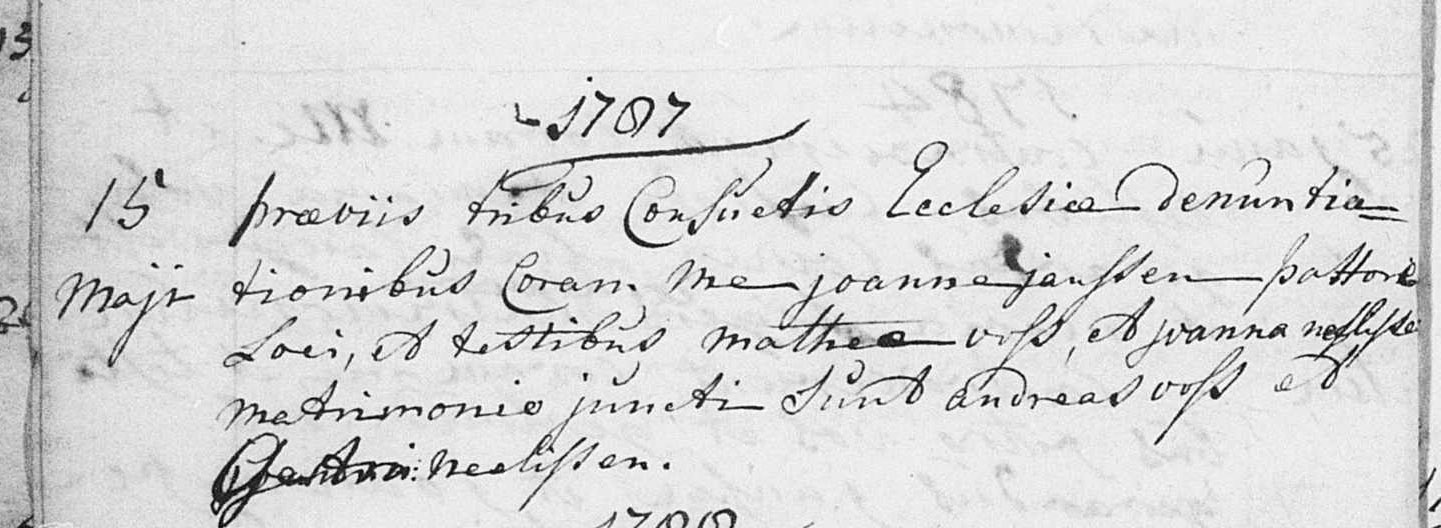 1787
15 præviis tribus Consuetis Ecclesiæ denuntia=
Maji tionibus Coram me joanne janssen pastore
Loci, et testibus matheo voss, et joanna neelissen
matrimonio juncti sunt andreas voss et
neelissen.